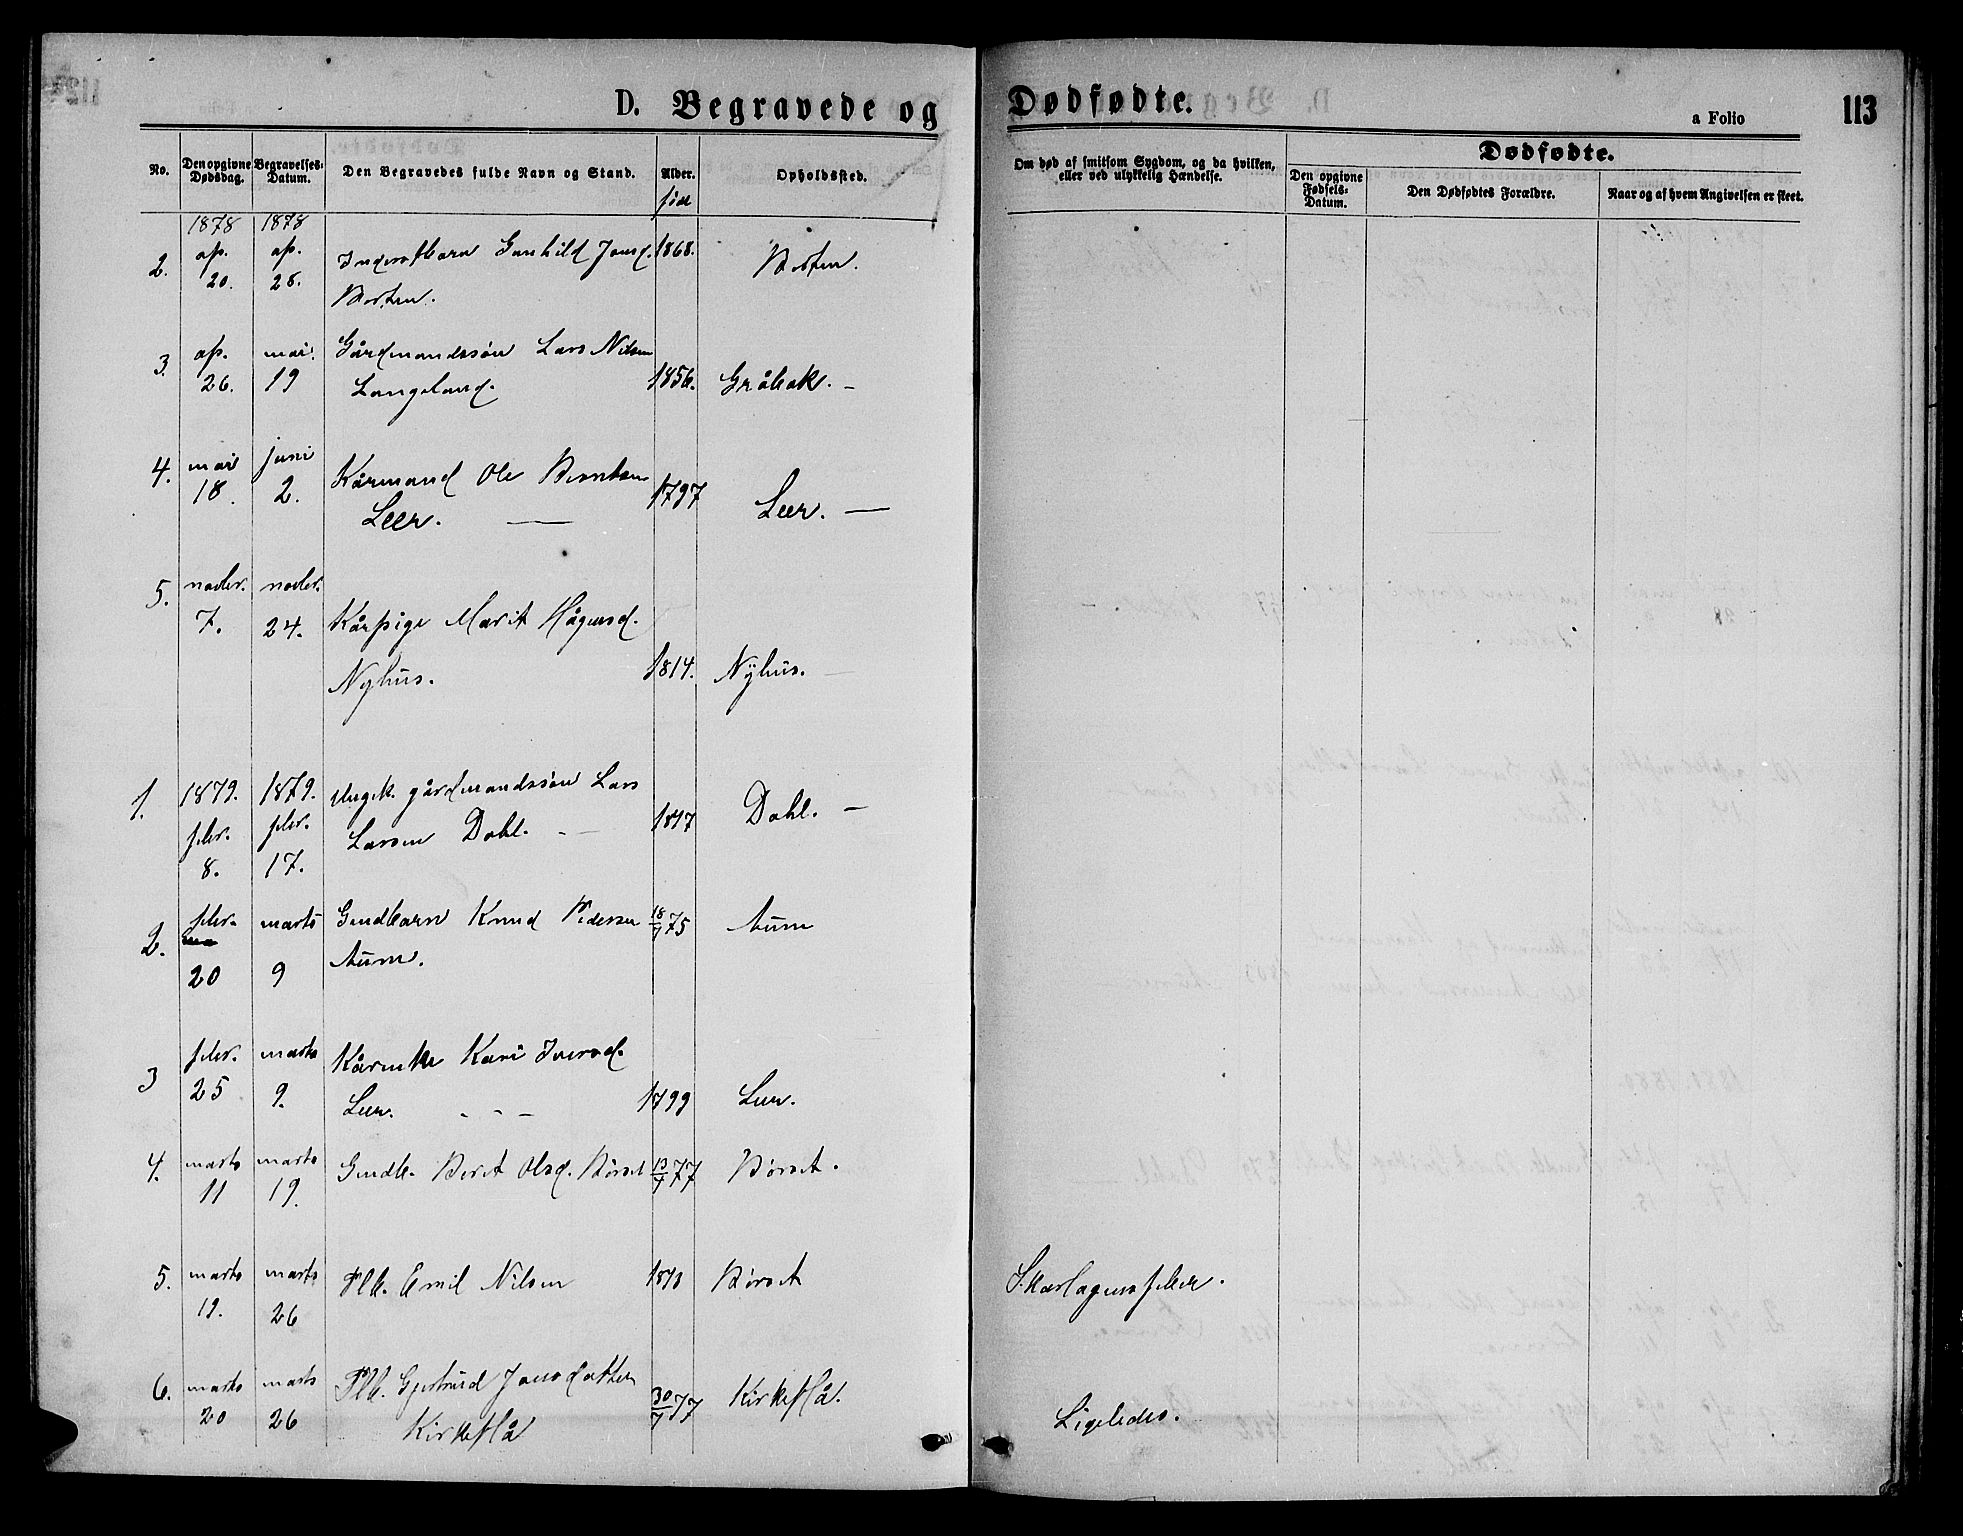 D. Begravede og Dødfødte.
a Folio 113
No. Den opgivne Dødsdag. Begravelses-Datum. Den Begravedes fulde Navn og Stand. Alder. Opholdssted.
Om død af smitsom Sygdom, og da hvilken, eller ved ulykkelig Hændelse.
Dødfødte.
Den opgivne Fødsels-Datum. Den Dødfødtes Forældre. Naar og af hvem Angivelsen er skeet.
født
1878 1878
2. ap. 20. ap. 28. Gunhild Jonsd. 1868. Borten.
Borten.
3. ap. 26. mai. 19 Gårdmandssøn Lars Nilsen 1856. Gråbak. –
Langeland.
4. mai 18. juni 2. Kårmand Ole Berntsen 1797 Leer. —
Leer. —
5. novbr. 7. novbr. 24. Kårpige Marit Hågensd. 1814. Nyhus.
Nyhus.
1879. 1879.
1. febr. 8. febr. 17. Ungk. gårdmandssøn Lars 1847 Dahl. –
Larsen Dahl. –
2. febr. 20 marts 9 Gmdbarn Knud Pedersen 18/7 75 Aune
Aune.
3 febr. 25. marts 9. Kårenke Kari Iversd. 1799 Leer.
Leer. - - -
4. marts 11 marts 19. Gmdb. Berit Olsd. Børset 13/7 77 Børset.
5. marts 19. marts 26 Plb. Emil Nilsen 1873 Børset Skarlagensfeber.
6. marts 20 marts 26 Plb. Gjertrud Jonsdatter 30/7 77 Kirkeflå. Ligeledes.
Kirkeflå